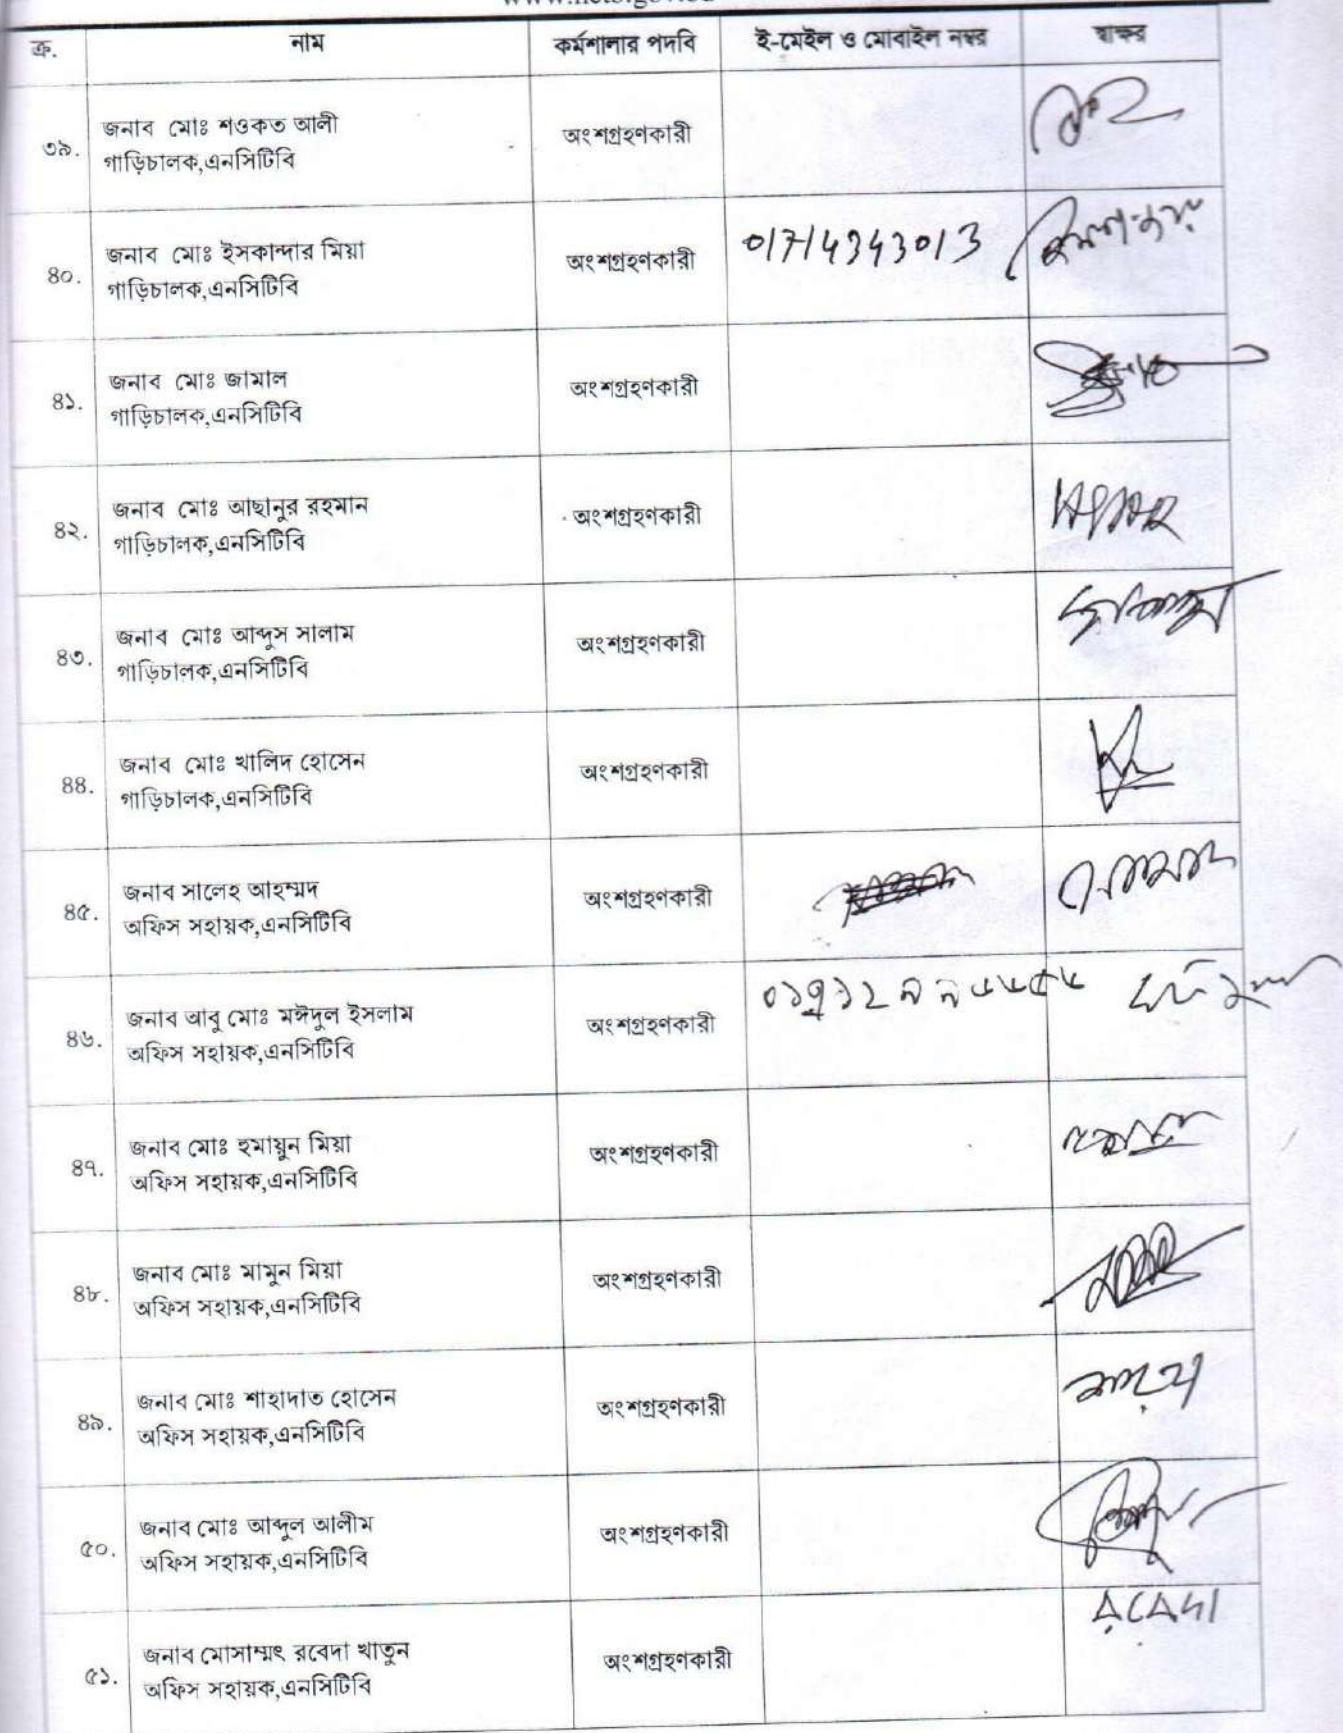 ক্র. নাম কর্মশালার পদবি ই-মেইল ও মোবাইল নম্বর স্বাক্ষর
৩৯. জনাব মোঃ শওকত আলী
গাড়িচালক,এনসিটিবি অংশগ্রহণকারী
৪০. জনাব মোঃ ইসকান্দার মিয়া
গাড়িচালক,এনসিটিবি অংশগ্রহণকারী 01714343013
৪১. জনাব মোঃ জামাল
গাড়িচালক,এনসিটিবি অংশগ্রহণকারী
৪২. জনাব মোঃ আছানুর রহমান
গাড়িচালক,এনসিটিবি অংশগ্রহণকারী
৪৩. জনাব মোঃ আব্দুস সালাম
গাড়িচালক,এনসিটিবি অংশগ্রহণকারী
৪৪. জনাব মোঃ খালিদ হোসেন
গাড়িচালক,এনসিটিবি অংশগ্রহণকারী
৪৫. জনাব সালেহ আহম্মদ
অফিস সহায়ক,এনসিটিবি অংশগ্রহণকারী
৪৬. জনাব আবু মোঃ মঈদুল ইসলাম
অফিস সহায়ক,এনসিটিবি অংশগ্রহণকারী
৪৭. জনাব মোঃ হুমায়ুন মিয়া
অফিস সহায়ক,এনসিটিবি অংশগ্রহণকারী
৪৮. জনাব মোঃ মামুন মিয়া
অফিস সহায়ক,এনসিটিবি অংশগ্রহণকারী
৪৯. জনাব মোঃ শাহাদাত হোসেন
অফিস সহায়ক,এনসিটিবি অংশগ্রহণকারী
৫০. জনাব মোঃ আব্দুল আলীম
অফিস সহায়ক,এনসিটিবি অংশগ্রহণকারী
৫১. জনাব মোসাম্মৎ রবেদা খাতুন
অফিস সহায়ক,এনসিটিবি অংশগ্রহণকারী রবেদা